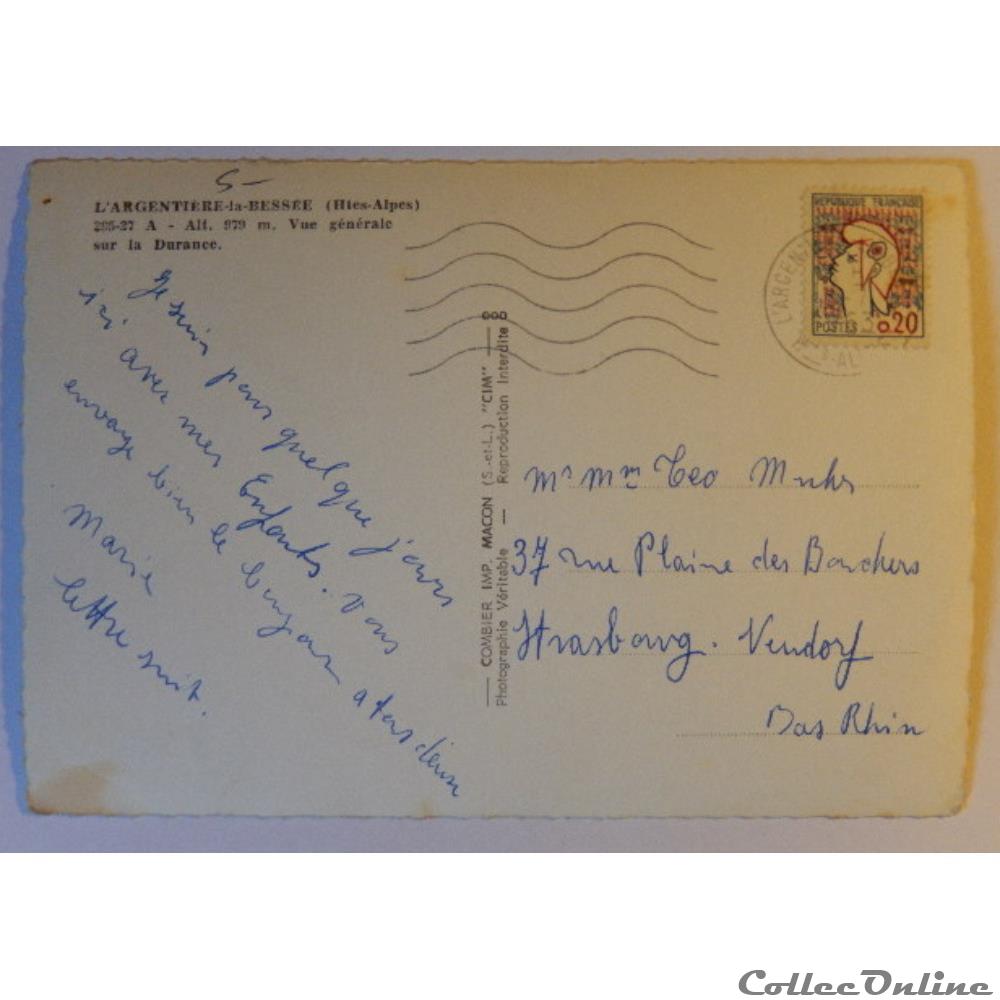 S-
L'ARGENTIÈRE-la-BESSÉE (Htes-Alpes)
295-27 A - Alt. 979 m. Vue générale
sur la Durance.
Je suis pour quelque jours
ici avec mes Enfants. vous
envoye bien le bonjour a tous deux
Marie
lettre suit.
COMBIER IMP. MACON (S.-et-L.) "CIM"
Photographie Véritable — Reproduction Interdite
REPUBLIQUE FRANÇAISE
POSTES 0.20
L'ARGEN
S-AL
Mr Mme Teo Muhr
37 rue Plaine des Bouchers
Strasbourg. Neudorf
Bas Rhin
CollecOnline